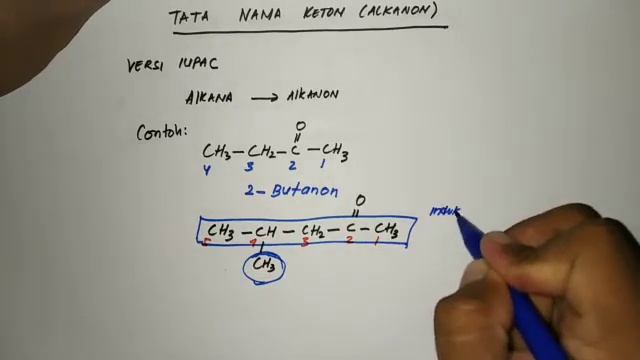 TATA NAMA KETON (ALKANON)
VERSI IUPAC
AlKANA → AlKANON
Contoh:
O
CH3 — CH2 — C — CH3
4 3 2 1
2 - Butanon
O
CH3 — CH — CH2 — C — CH3
5 4 3 2 1
CH3